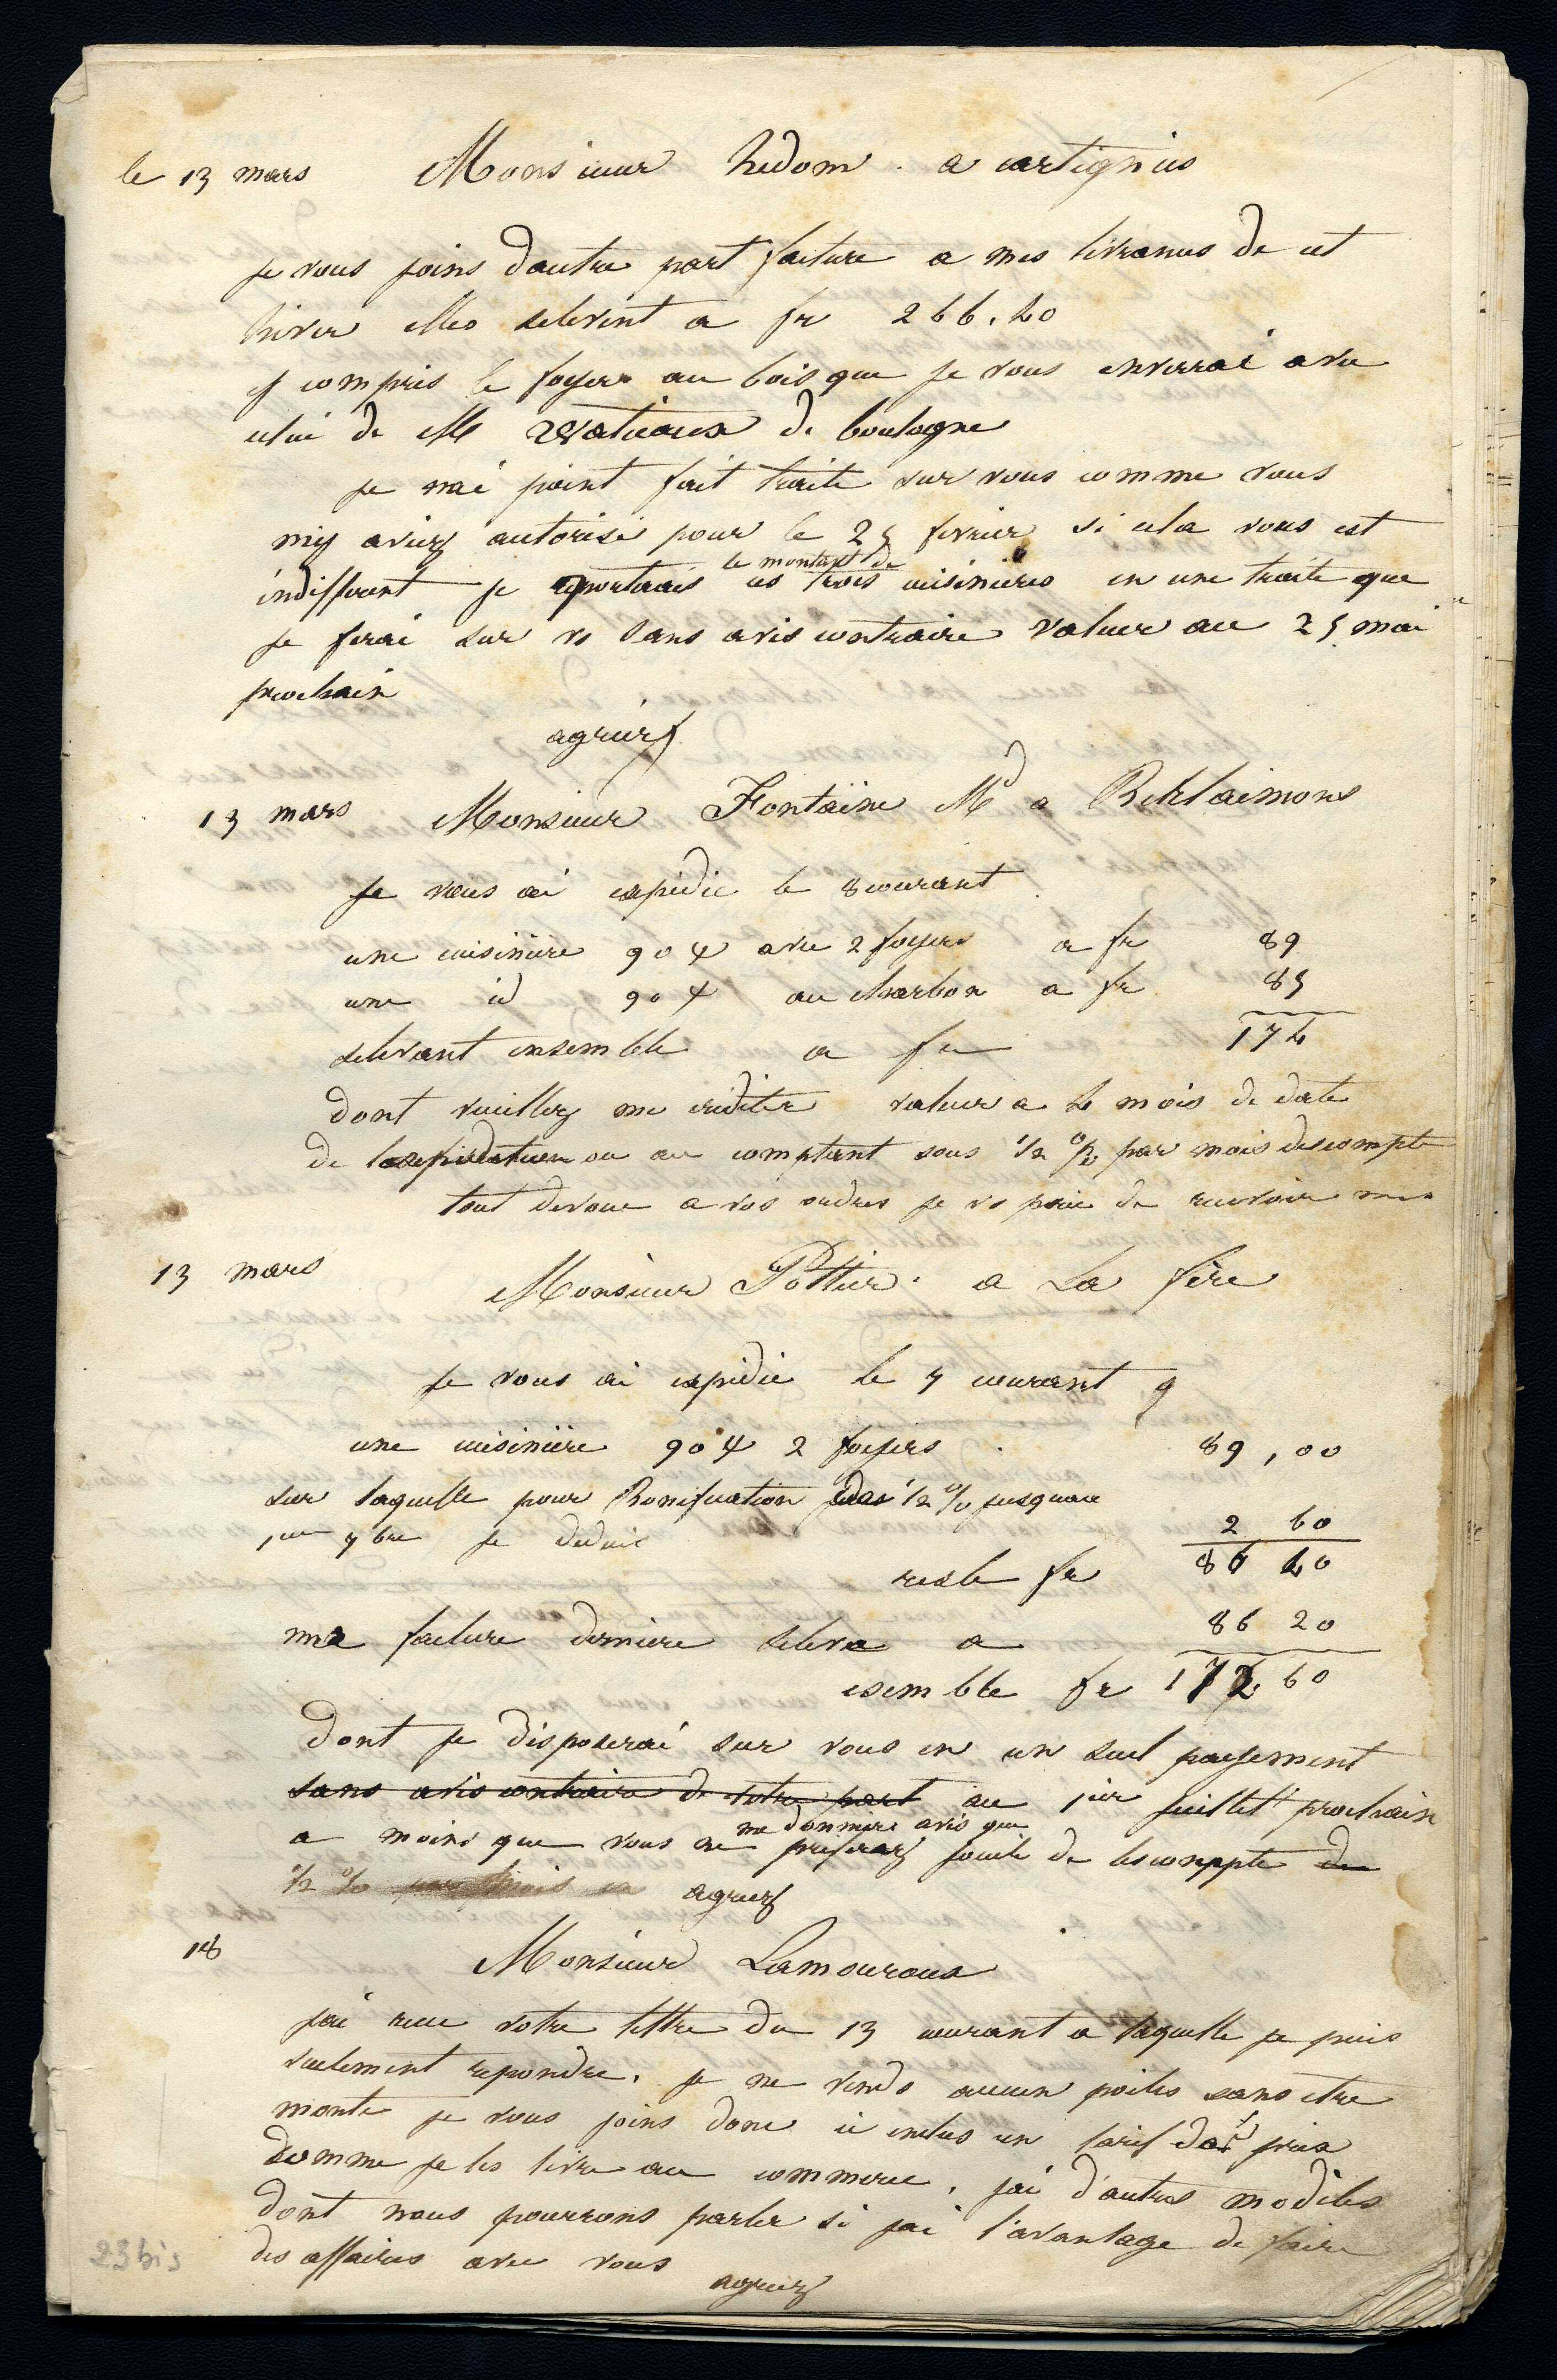 le 13 mars Monsieur hedom a cartignies
je vous joins dautre part facture a mes livranes de cet
hiver elles selevent a fr 266.40
y compris le foyer au bois que je vous enverrai avec
celui de M watiaux de boulogne
je nai point fait traite sur vous comme vous
my aviez autorisé pour le 25 fevrier si cela vous est
le montant de
indifferent je ces trois cuisinieres en une traite que
je ferai sur vs sans avis contraire valeur au 25 mai
prochain
agreez
13 mars Monsieur Fontaine Md a Berlaimons
je vous ai expedie le 8 courant
une cuisinière 904 avec 2 foyers a fr 89
une id 904 au charbon a fr 85
selevant ensemble a fr 174
dont veuillez me crediter valeur a 4 mois de date
de ou au comptant sous 1/2 % par mois descompte
tout devoue a vos ordres je vs prie de recevoir mes
13 mars Monsieur Pottier a La fère
je vous ai expedie le 7 courant
une cuisinière 904 2 foyers 89,00
sur laquelle pour Bonification 1/2 % jusquau
1er 7bre je deduis 2 60
reste fr 86 40
ma facture derniere seleva a 86 20
esemble fr 172 60
dont je disposerai sur vous en un seul payement
sans avis contraire de votre part au 1er juillet prochain
me donniez avis que
a moins que vous ne preferez jouir de lescompte de
1/2 % par mois agreez
18 Monsieur Lamouroux
jai recu votre lettre du 13 courant a laquelle je puis
seulement repondre. je ne vends aucun poiles sans etre
monte je vous joins donc ci inclus un tarif des prix
comme je les livre au commerce, jai d'autres modèles
dont nous pourrons parler si jai l'avantage de faire
des affaires avec vous
agreez
23 bis